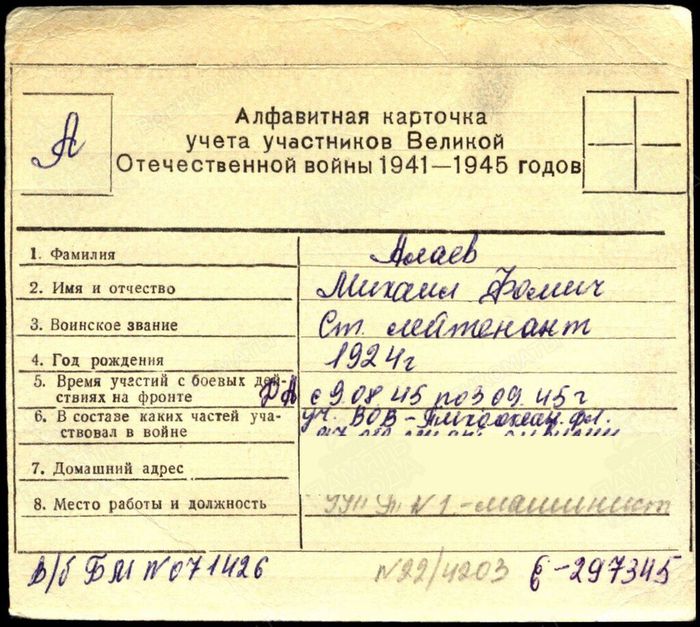 А
Алфавитная карточка
учета участников Великой
Отечественной войны 1941—1945 годов
1. Фамилия Алаев
2. Имя и отчество Михаил Фомич
3. Воинское звание Ст. лейтенант
4. Год рождения 1924г
5. Время участий с боевых дей-
ствиях на фронте с 9.08.45 по 3.09.45г
6. В составе каких частей уча-
ствовал в войне уч. ВОВ - Тихоокеан. фл.
7. Домашний адрес
8. Место работы и должность №1.-машинист
В/б БМ №071426 №22/4203 Б-297345